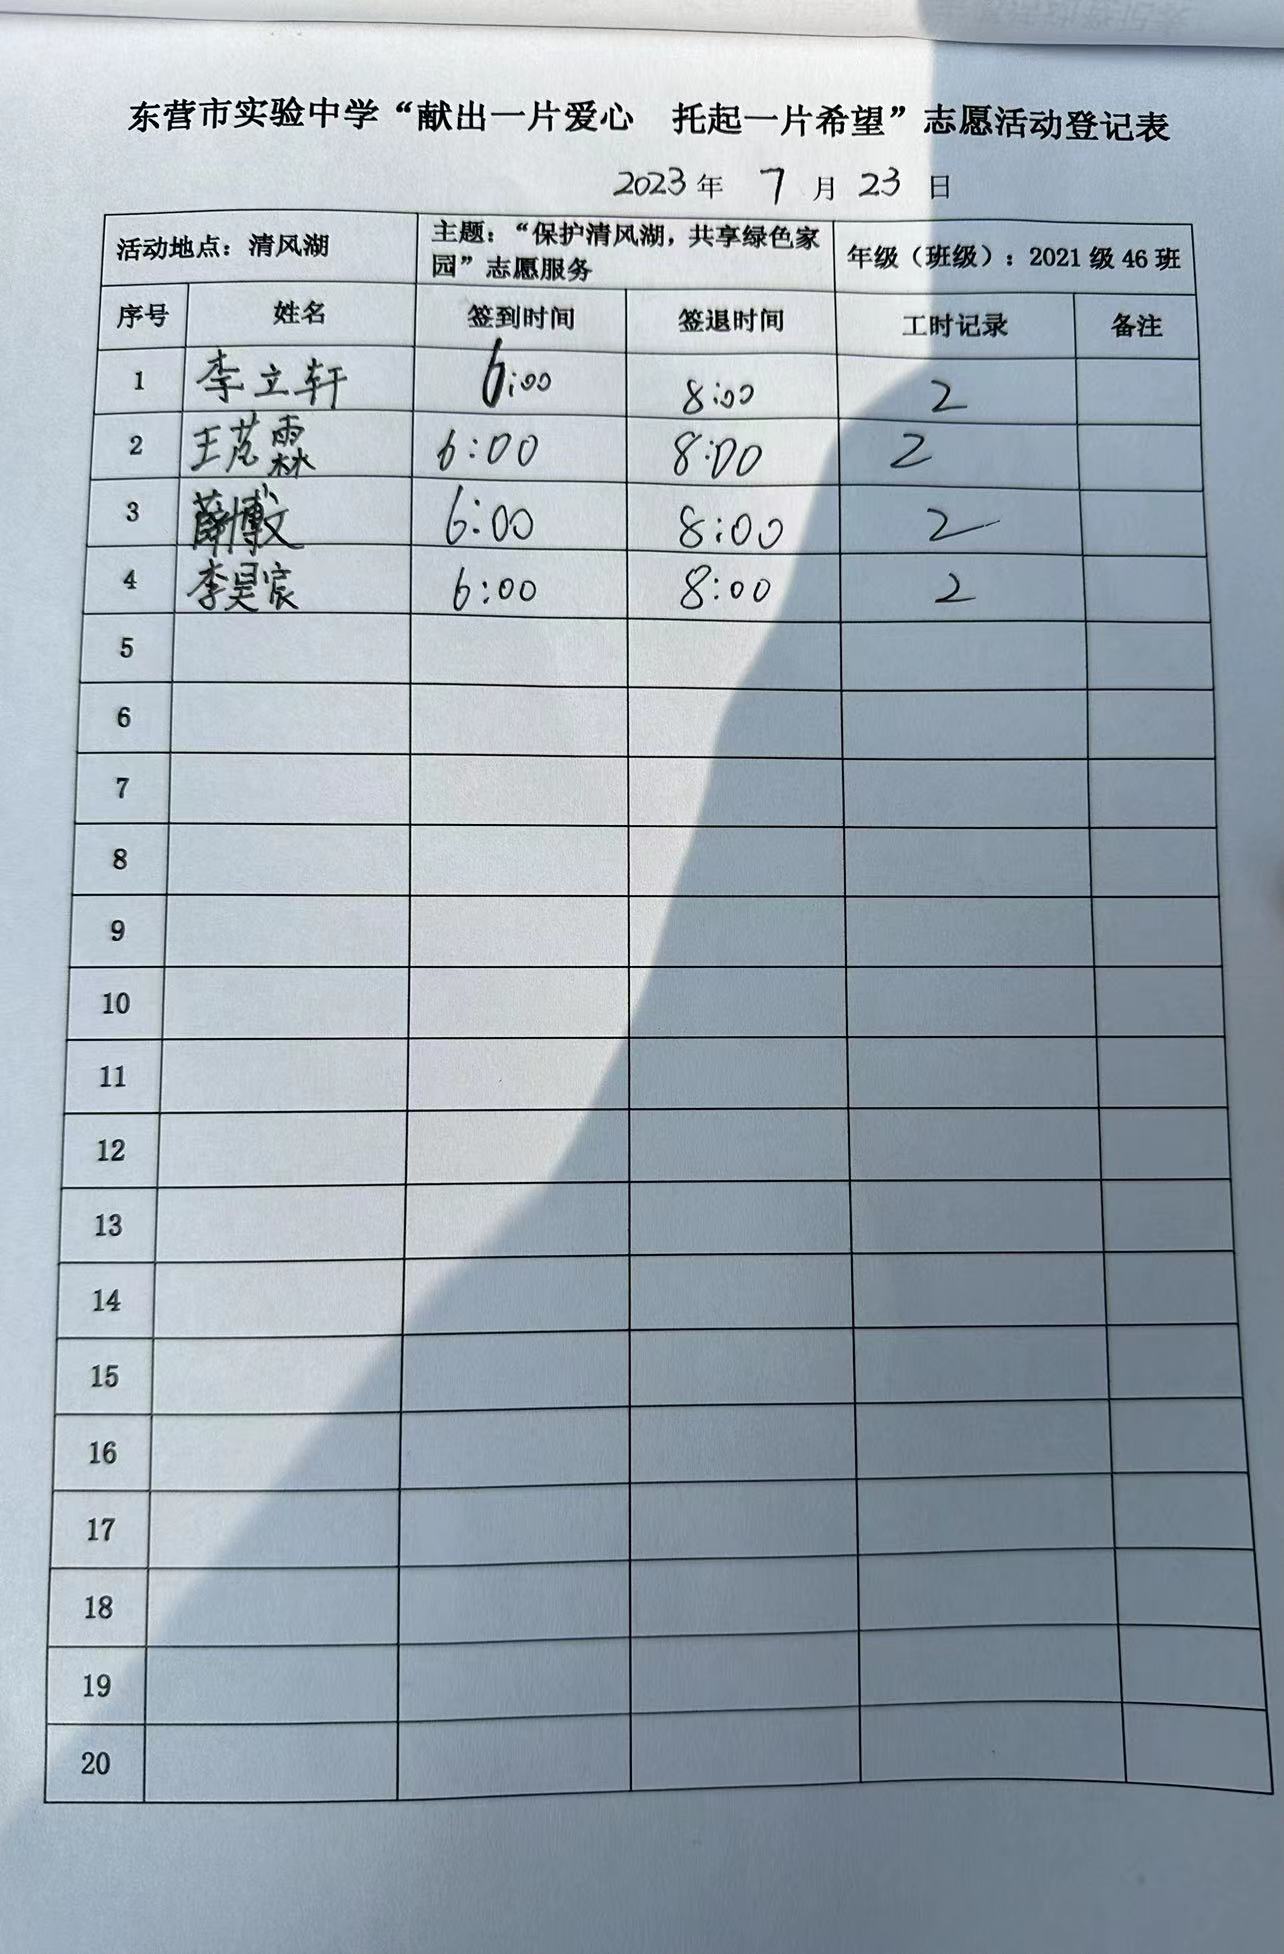 东营市实验中学“献出一片爱心 托起一片希望”志愿活动登记表
2023年 7 月 23 日
活动地点：清风湖 主题：“保护清风湖，共享绿色家园”志愿服务 年级（班级）：2021级46班
序号 姓名 签到时间 签退时间 工时记录 备注
1 李立轩 6:00 8:00 2
2 王范霖 6:00 8:00 2
3 薛博文 6:00 8:00 2
4 李昊宸 6:00 8:00 2
5
6
7
8
9
10
11
12
13
14
15
16
17
18
19
20